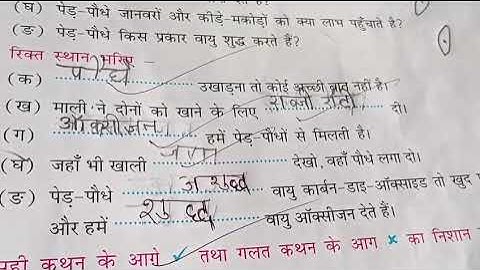 (घ) पेड़-पौधे जानवरों और कीड़े-मकोड़ों को क्या लाभ पहुँचाते है?
(ङ) पेड़-पौधे किस प्रकार वायु शुद्ध करते हैं?
रिक्त स्थान भरिए –
(क) पौधे उखाड़ना तो कोई अच्छी बात नहीं है।
(ख) माली ने दोनों को खाने के लिए दी।
(ग) ऑक्सीजन हमें पेड़-पौधों से मिलती है।
(घ) जहाँ भी खाली जगह देखो, वहाँ पौधे लगा दो।
(ङ) पेड़-पौधे अशुद्ध वायु कार्बन-डाइ-ऑक्साइड तो खुद
और हमें शुद्ध वायु ऑक्सीजन देते हैं।
कथन के आगे ✓ तथा गलत कथन के आगे × का निशान